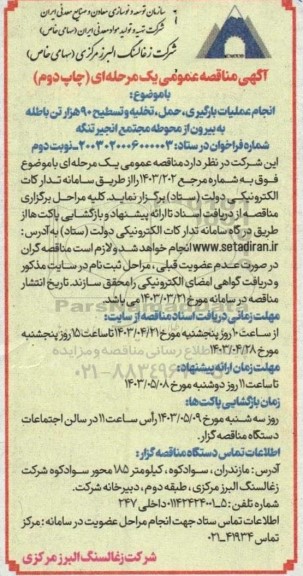 سازمان توسعه و نوسازی معادن و صنایع معدنی ایران
شرکت تهیه و تولید مواد معدنی ایران (سهامی خاص)
شرکت زغالسنگ البرز مرکزی (سهامی خاص)
آگهی مناقصه عمومی یک مرحله‌ای (چاپ دوم)
با موضوع:
انجام عملیات بارگیری، حمل، تخلیه و تسطیح ۹۰ هزار تن باطله
به بیرون از محوطه مجتمع انجیر تنگه
شماره فراخوان در ستاد: ۲۰۰۳۰۲۰۰۰۶۰۰۰۰۰۳ـ نوبت دوم
این شرکت در نظر دارد مناقصه عمومی یک مرحله‌ای با موضوع
فوق به شماره مرجع ۱۴۰۳/۲۰۲ را از طریق سامانه تدارکات
الکترونیکی دولت (ستاد) برگزار نماید. کلیه مراحل برگزاری
مناقصه از دریافت اسناد تا ارائه پیشنهاد و بازگشایی پاکت‌ها از
طریق درگاه سامانه تدارکات الکترونیکی دولت (ستاد) به آدرس:
www.setadiran.ir انجام خواهد شد و لازم است مناقصه گران
در صورت عدم عضویت قبلی، مراحل ثبت نام در سایت مذکور
و دریافت گواهی امضای الکترونیکی را محقق سازند. تاریخ انتشار
مناقصه در سامانه مورخ ۱۴۰۳/۰۳/۲۱ می باشد.
مهلت زمانی دریافت اسناد مناقصه از سایت:
از ساعت ۱۰ روز پنجشنبه مورخ ۱۴۰۳/۰۴/۲۱ تا ساعت ۱۵ روز پنجشنبه
مورخ ۱۴۰۳/۰۴/۲۸
مهلت زمان ارائه پیشنهاد:
تا ساعت ۱۱ روز دوشنبه مورخ ۱۴۰۳/۰۵/۰۸
زمان بازگشایی پاکت‌ها:
روز سه شنبه مورخ ۱۴۰۳/۰۵/۰۹ رأس ساعت ۱۱ در سالن اجتماعات
دستگاه مناقصه گزار.
اطلاعات تماس دستگاه مناقصه گزار:
آدرس: مازندران، سوادکوه، کیلومتر ۱۸۵ محور سوادکوه شرکت
زغالسنگ البرز مرکزی، طبقه دوم، دبیرخانه شرکت.
شماره تلفن: ۵ـ۰۱۱۴۲۴۲۴۰۰۱ داخلی ۲۴۷
اطلاعات تماس ستاد جهت انجام مراحل عضویت در سامانه: مرکز
تماس ۴۱۹۳۴ـ۰۲۱
شرکت زغالسنگ البرز مرکزی